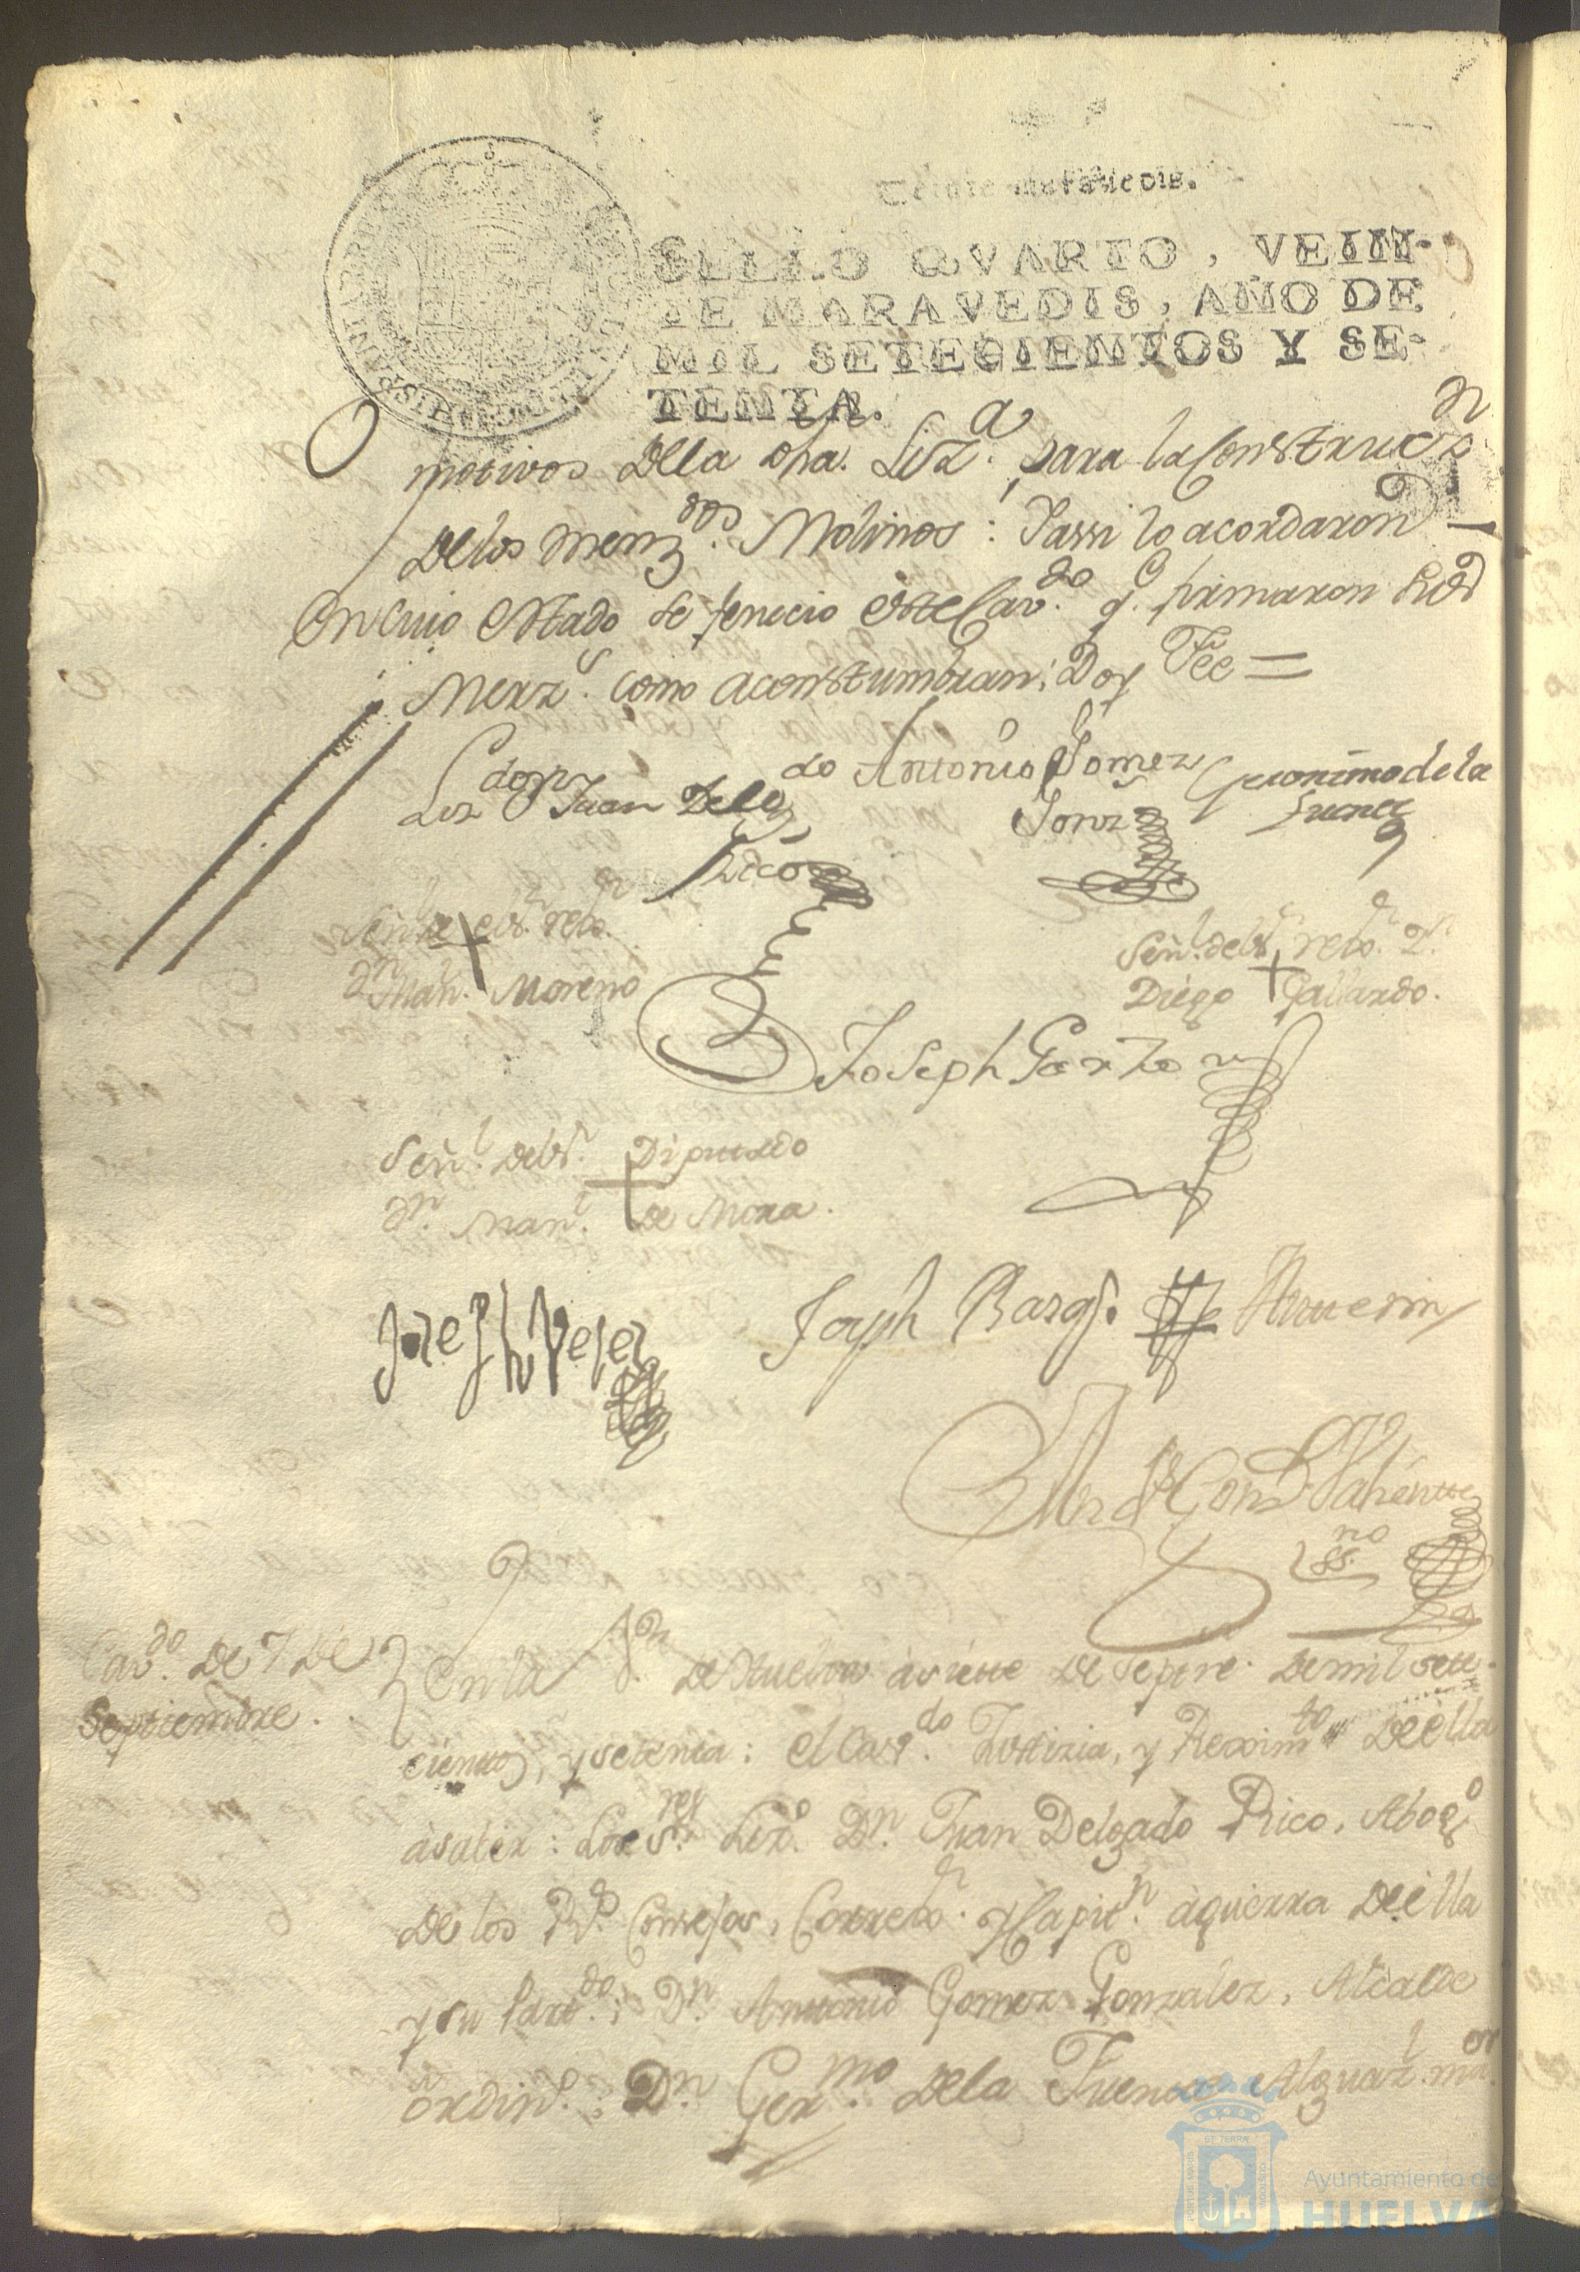 Veinte maravedis.
SELLO QVARTO, VEIN-
TE MARAVEDIS, AÑO DE
MIL SETECIENTOS Y SE-
TENTA.
motivos Dela dha. Liz.ª para la Construcc.n
Delos menz.dos Molinos: Yassi lo acordaron
En Cuio estado se fenecio este Cav.do q. firmaron sus
Merz.s como acostumbran; Doy Fee =
Liz.do Dn Juan Delg.do
Rico
Antonio Gomez
Gonz
Geronimo de la
Fuente
Señ.l del Sr. rex.r
Dn Man.l Moreno
Señ.l del Sr. rex.r Dn
Diego Gallardo.
Joseph Garzon
Señ.l del Sr. Diputado
Dn. Man.l de Mora.
Joseph Vejer
Joseph
Valiente
ss.no
Cav.do de 7 de
Septiembre.
En la V.a de Huelva a siete de Septre. de mil sete-
cientos, y setenta: el Cav.do Justizia, y Reximto. de ella
a saber: Los S.res Liz.do Dn. Juan Delgado Rico, Abog.do
de los R.s Consejos, Correx.r y Capit.n a guerra de ella
y su Part.do; Dn. Antonio Gomez Gonzalez, Alcalde
ordin.o; Dn Ger.mo de la Fuente Alguaz.l m.or
Ayuntamiento de
HUELVA